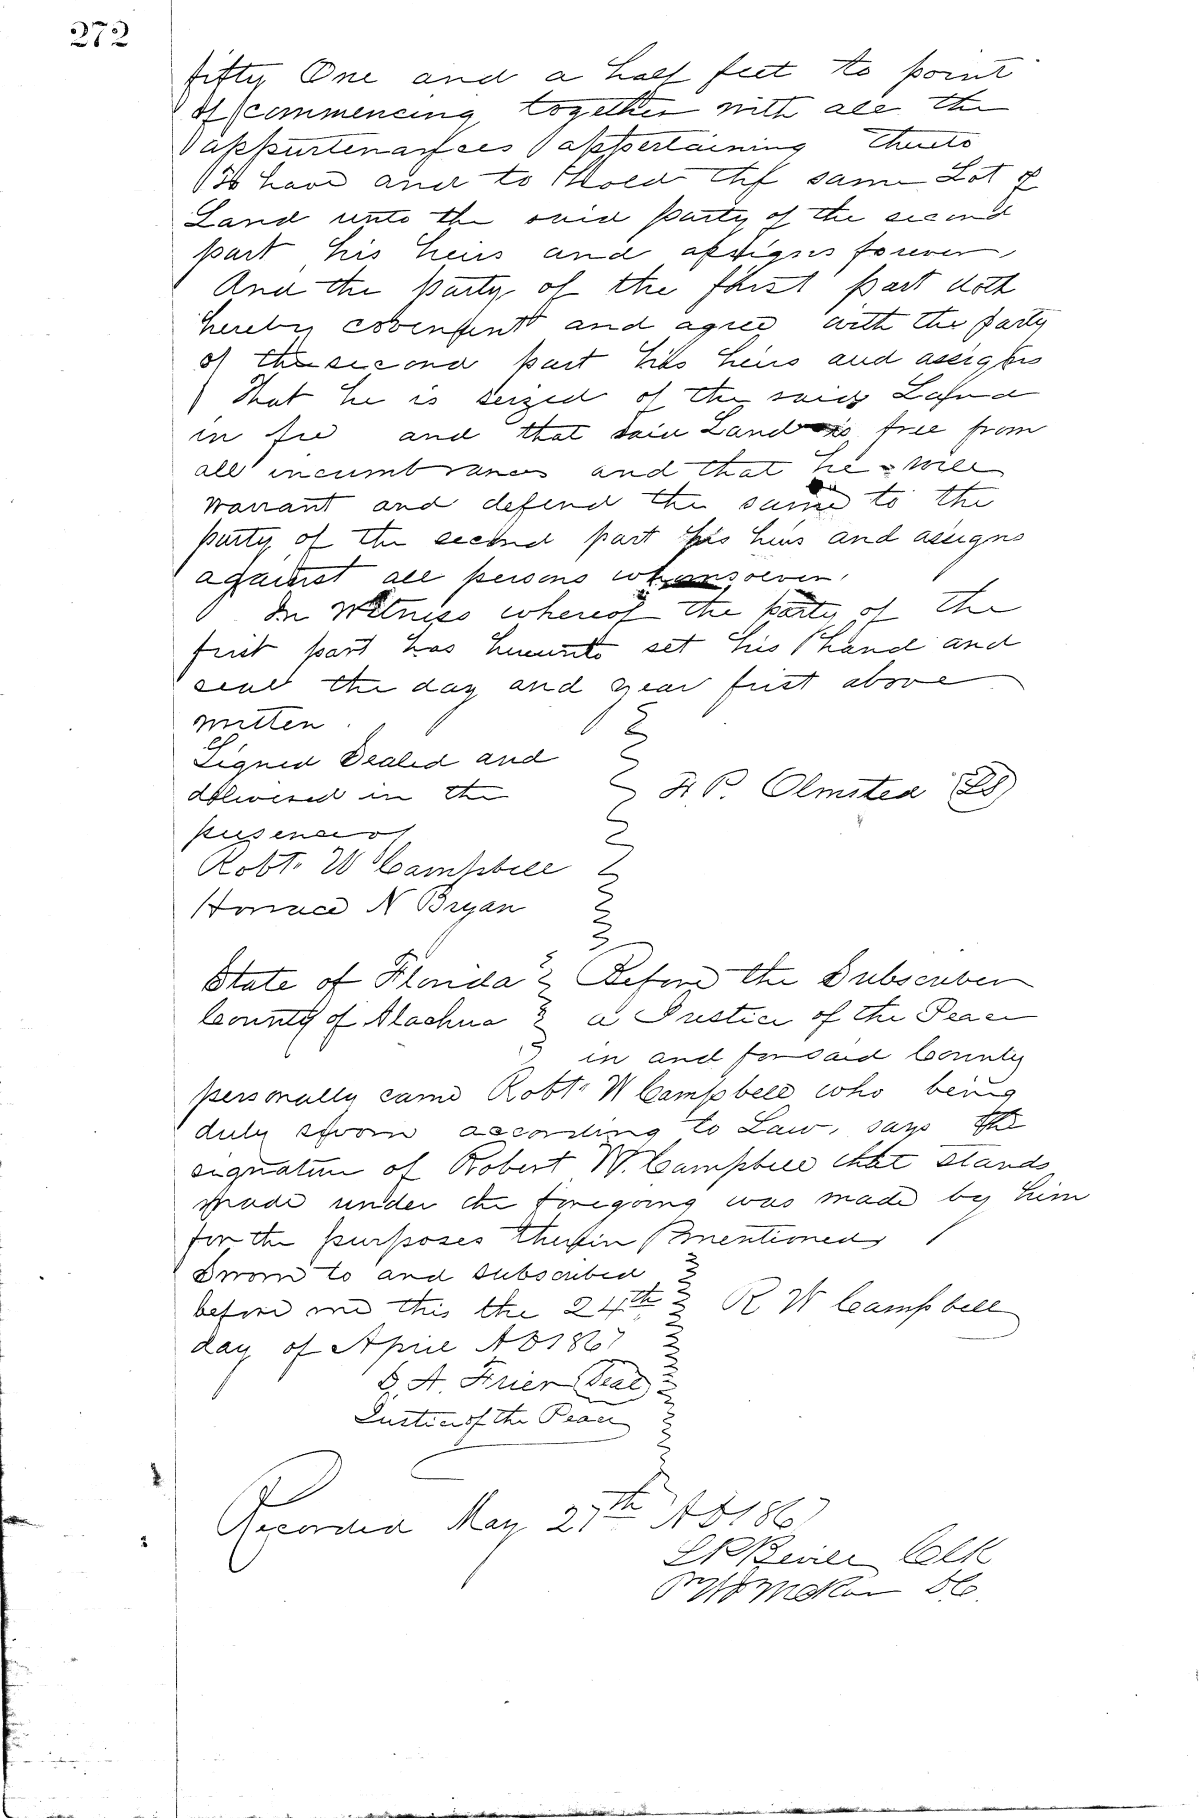 272
fifty One and a half feet to point
of commencing together with all the
appurtenances appertaining thereto
To have and to Hold the same Lot of
Land unto the said party of the second
part his heirs and assigns forever,
And the party of the first part doth
hereby covenant and agree with the party
of the second part his heirs and assigns
That he is seized of the said Land
in fee and that said Land is free from
all incumbrances and that he will
warrant and defend the same to the
party of the second part his heirs and assigns
against all persons whomsoever.
In Witness whereof the party of the
first part has hereunto set his hand and
seal the day and year first above
written.
Signed Sealed and
delivered in the
presence of
Robt. W Campbell
Horrace N Bryan
P. Olmsted LS
State of Florida
County of Alachua
Before the Subscriber
a Justice of the Peace
in and for said County
personally came Robt. W Campbell who being
duly sworn according to Law, says the
signature of Robert W. Campbell that stands
made under the foregoing was made by him
for the purposes therein mentioned
Sworn to and subscribed
before me this the 24th
day of April AD 1867
R W Campbell
A. Frier Seal
Justice of the Peace
Recorded May 27th AD 1867
Beville Clk
DC.